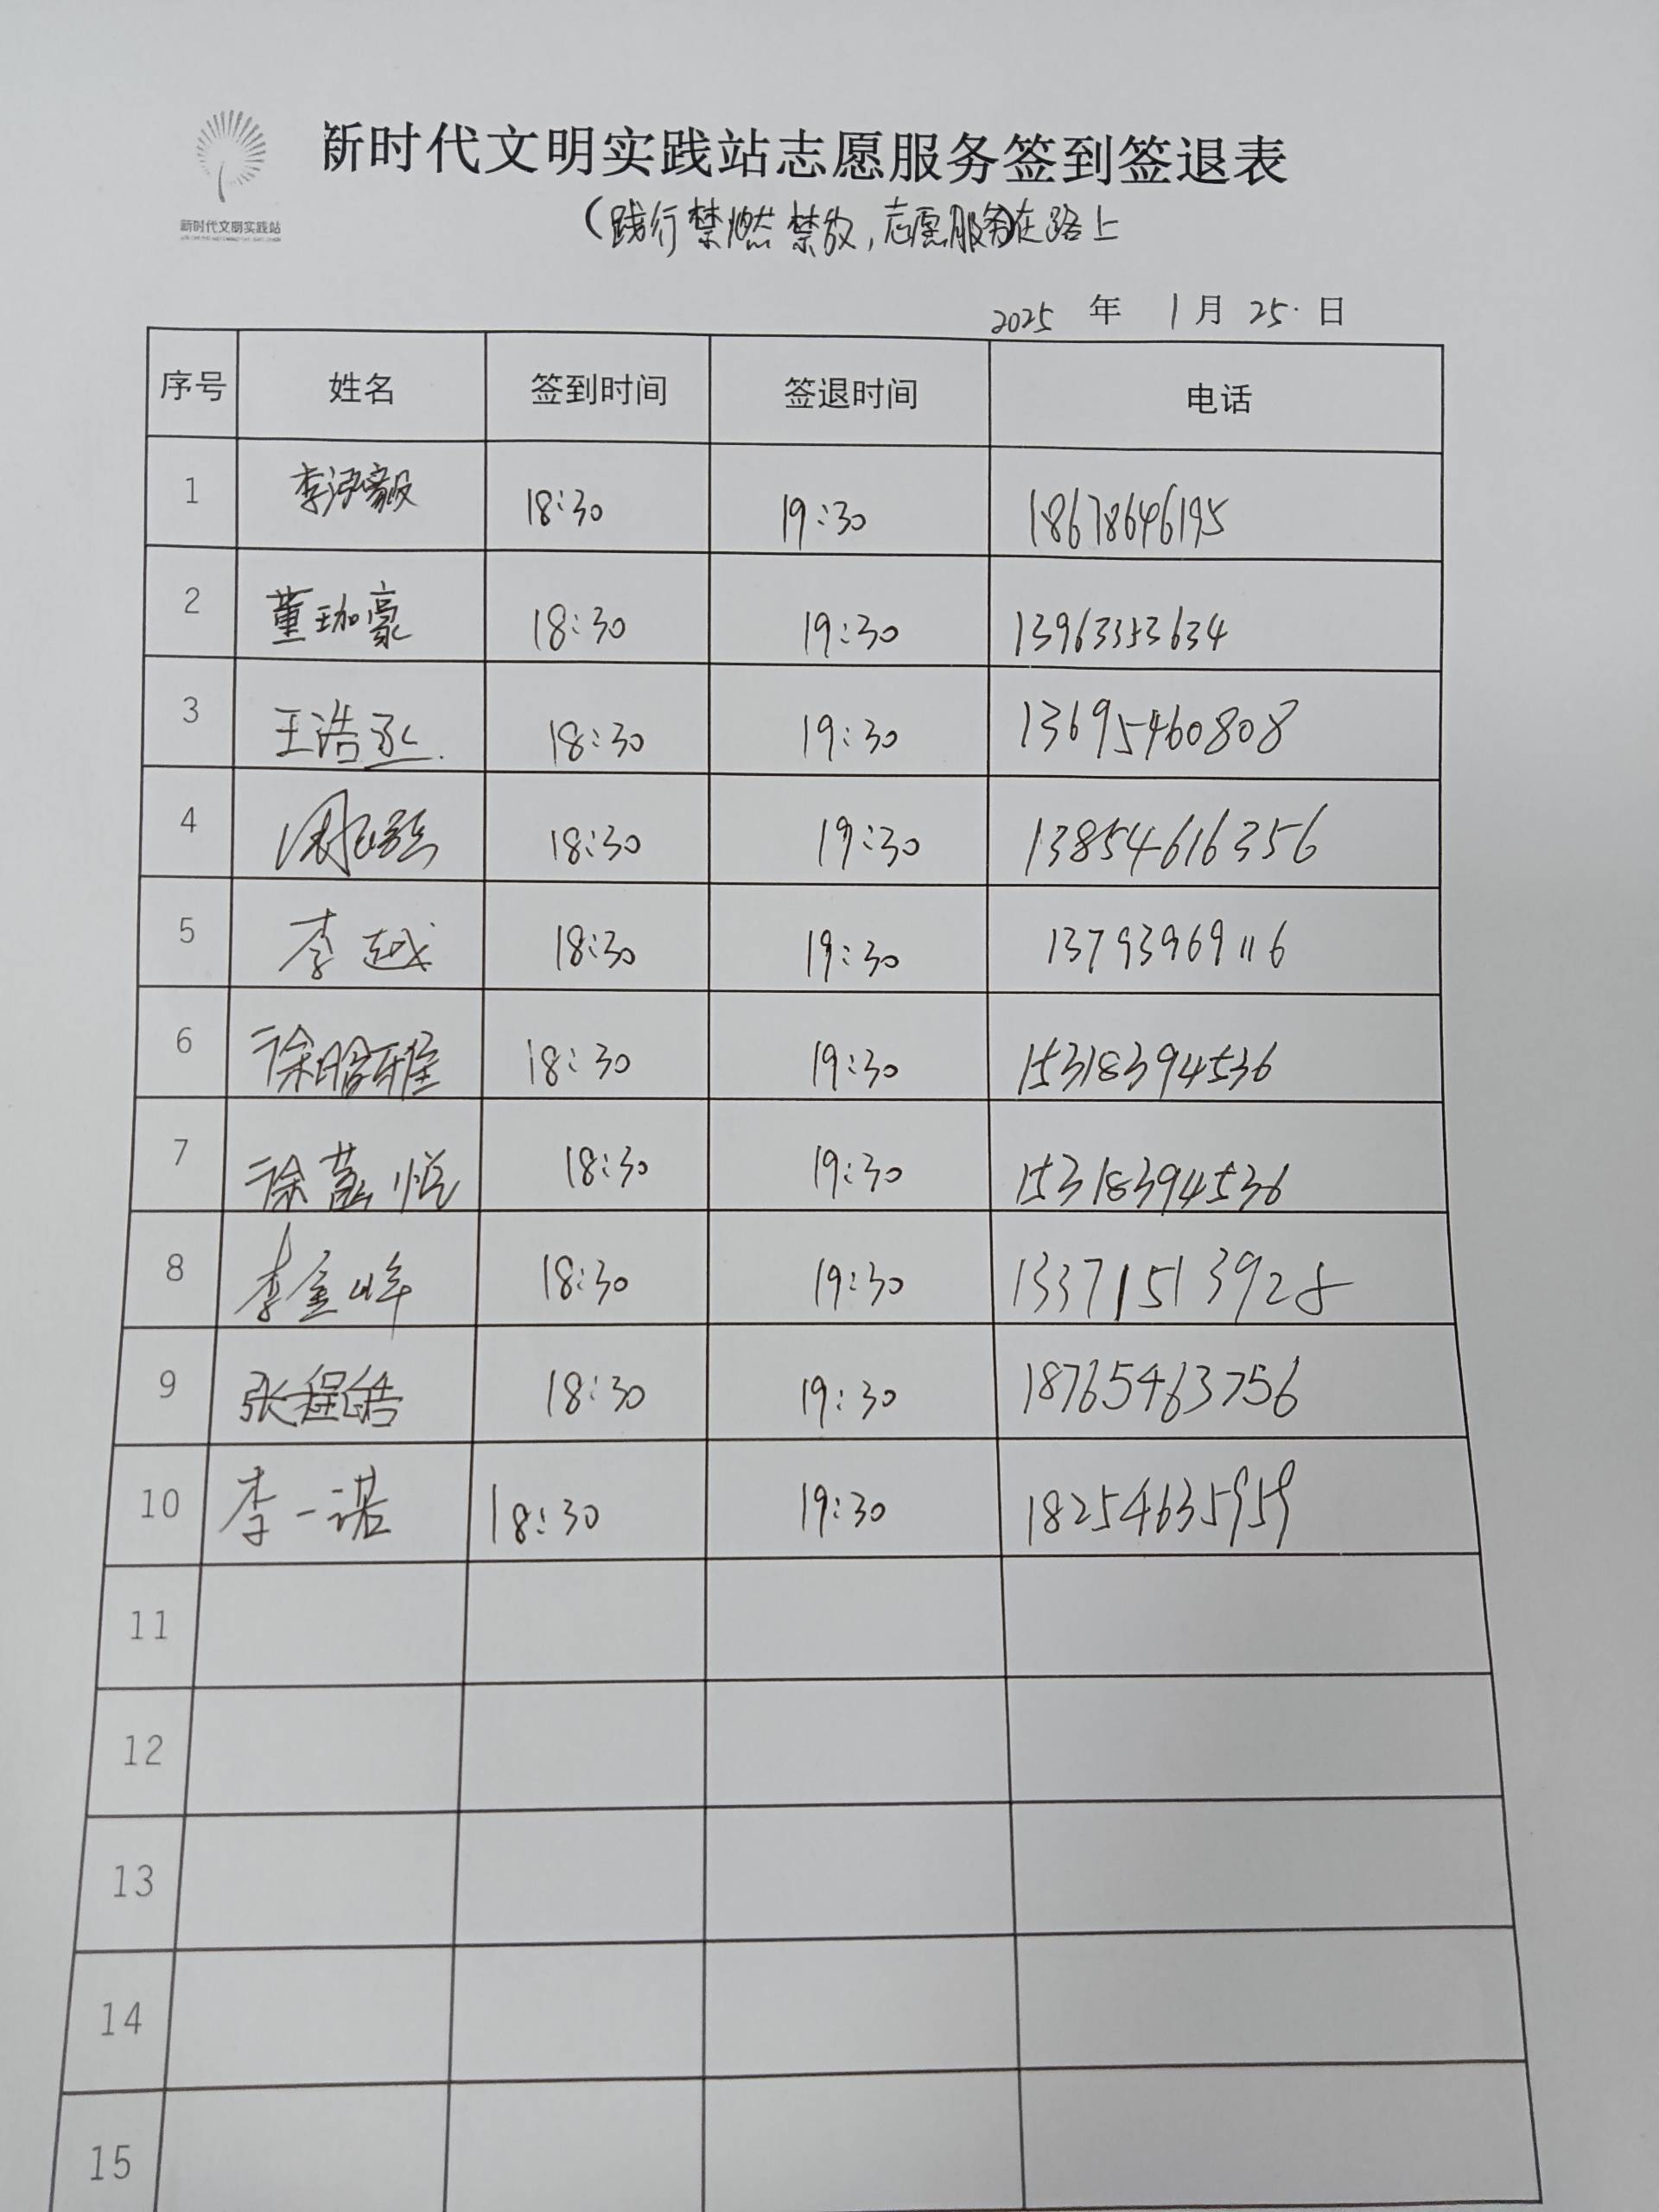 新时代文明实践站志愿服务签到签退表
新时代文明实践站
(践行禁燃禁放,志愿服务在路上
2025 年 1 月 25 日
序号 姓名 签到时间 签退时间 电话
1 李泓毅 18:30 19:30 18678646195
2 董珈豪 18:30 19:30 13963353634
3 王浩丞 18:30 19:30 13695460808
4 18:30 19:30 13854616356
5 李越 18:30 19:30 13793969116
6 徐 雅 18:30 19:30 15318394536
7 徐 悦 18:30 19:30 15318394536
8 李金峰 18:30 19:30 13371513928
9 张程皓 18:30 19:30 18765463756
10 李一诺 18:30 19:30 18254635959
11
12
13
14
15